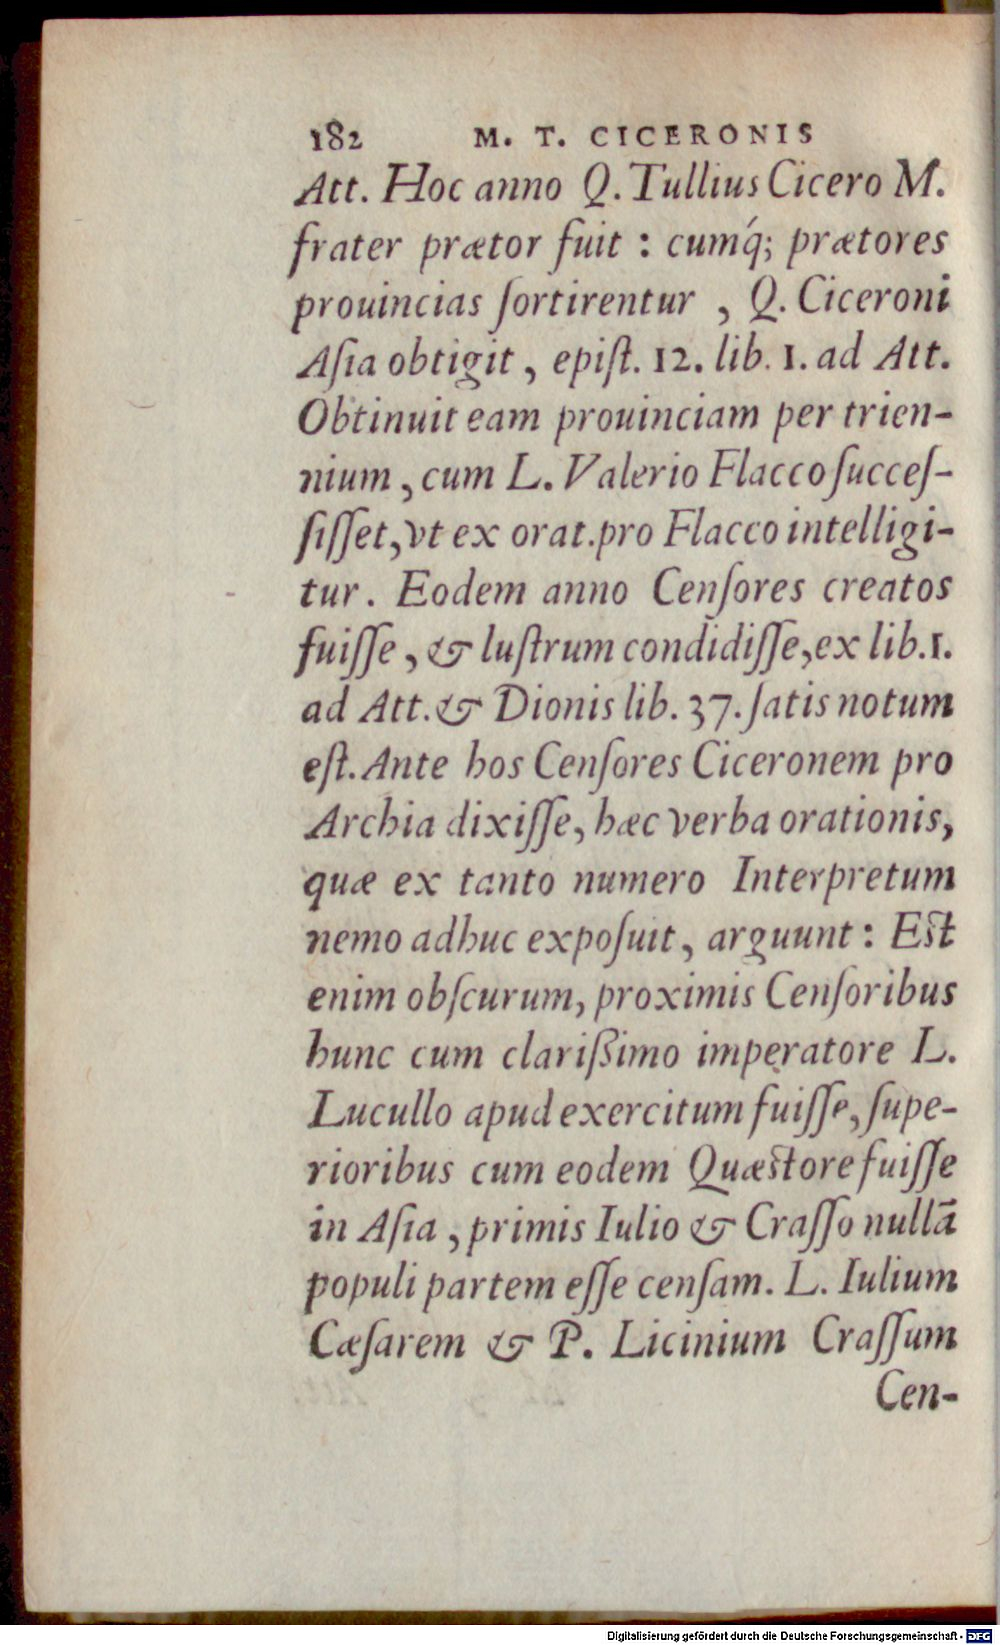 182 M. T. CICERONIS
Att. Hoc anno Q. Tullius Cicero M.
frater prætor fuit : cumq́; prætores
prouincias ſortirentur , Q. Ciceroni
Aſia obtigit , epiſt. 12. lib. 1. ad Att.
Obtinuit eam prouinciam per trien-
nium , cum L. Valerio Flacco ſucceſ-
ſiſſet, vt ex orat. pro Flacco intelligi-
tur. Eodem anno Cenſores creatos
fuiſſe , & luſtrum condidiſſe, ex lib. 1.
ad Att. & Dionis lib. 37. ſatis notum
eſt. Ante hos Cenſores Ciceronem pro
Archia dixiſſe, hæc verba orationis,
quæ ex tanto numero Interpretum
nemo adhuc expoſuit , arguunt : Eſt
enim obſcurum, proximis Cenſoribus
hunc cum clarißimo imperatore L.
Lucullo apud exercitum fuiſſe, ſupe-
rioribus cum eodem Quæſtore fuiſſe
in Aſia , primis Iulio & Craſſo nullā
populi partem eſſe cenſam. L. Iulium
Cæſarem & P. Licinium Craſſum
Cen-
Digitalisierung gefördert durch die Deutsche Forschungsgemeinschaft - DFG